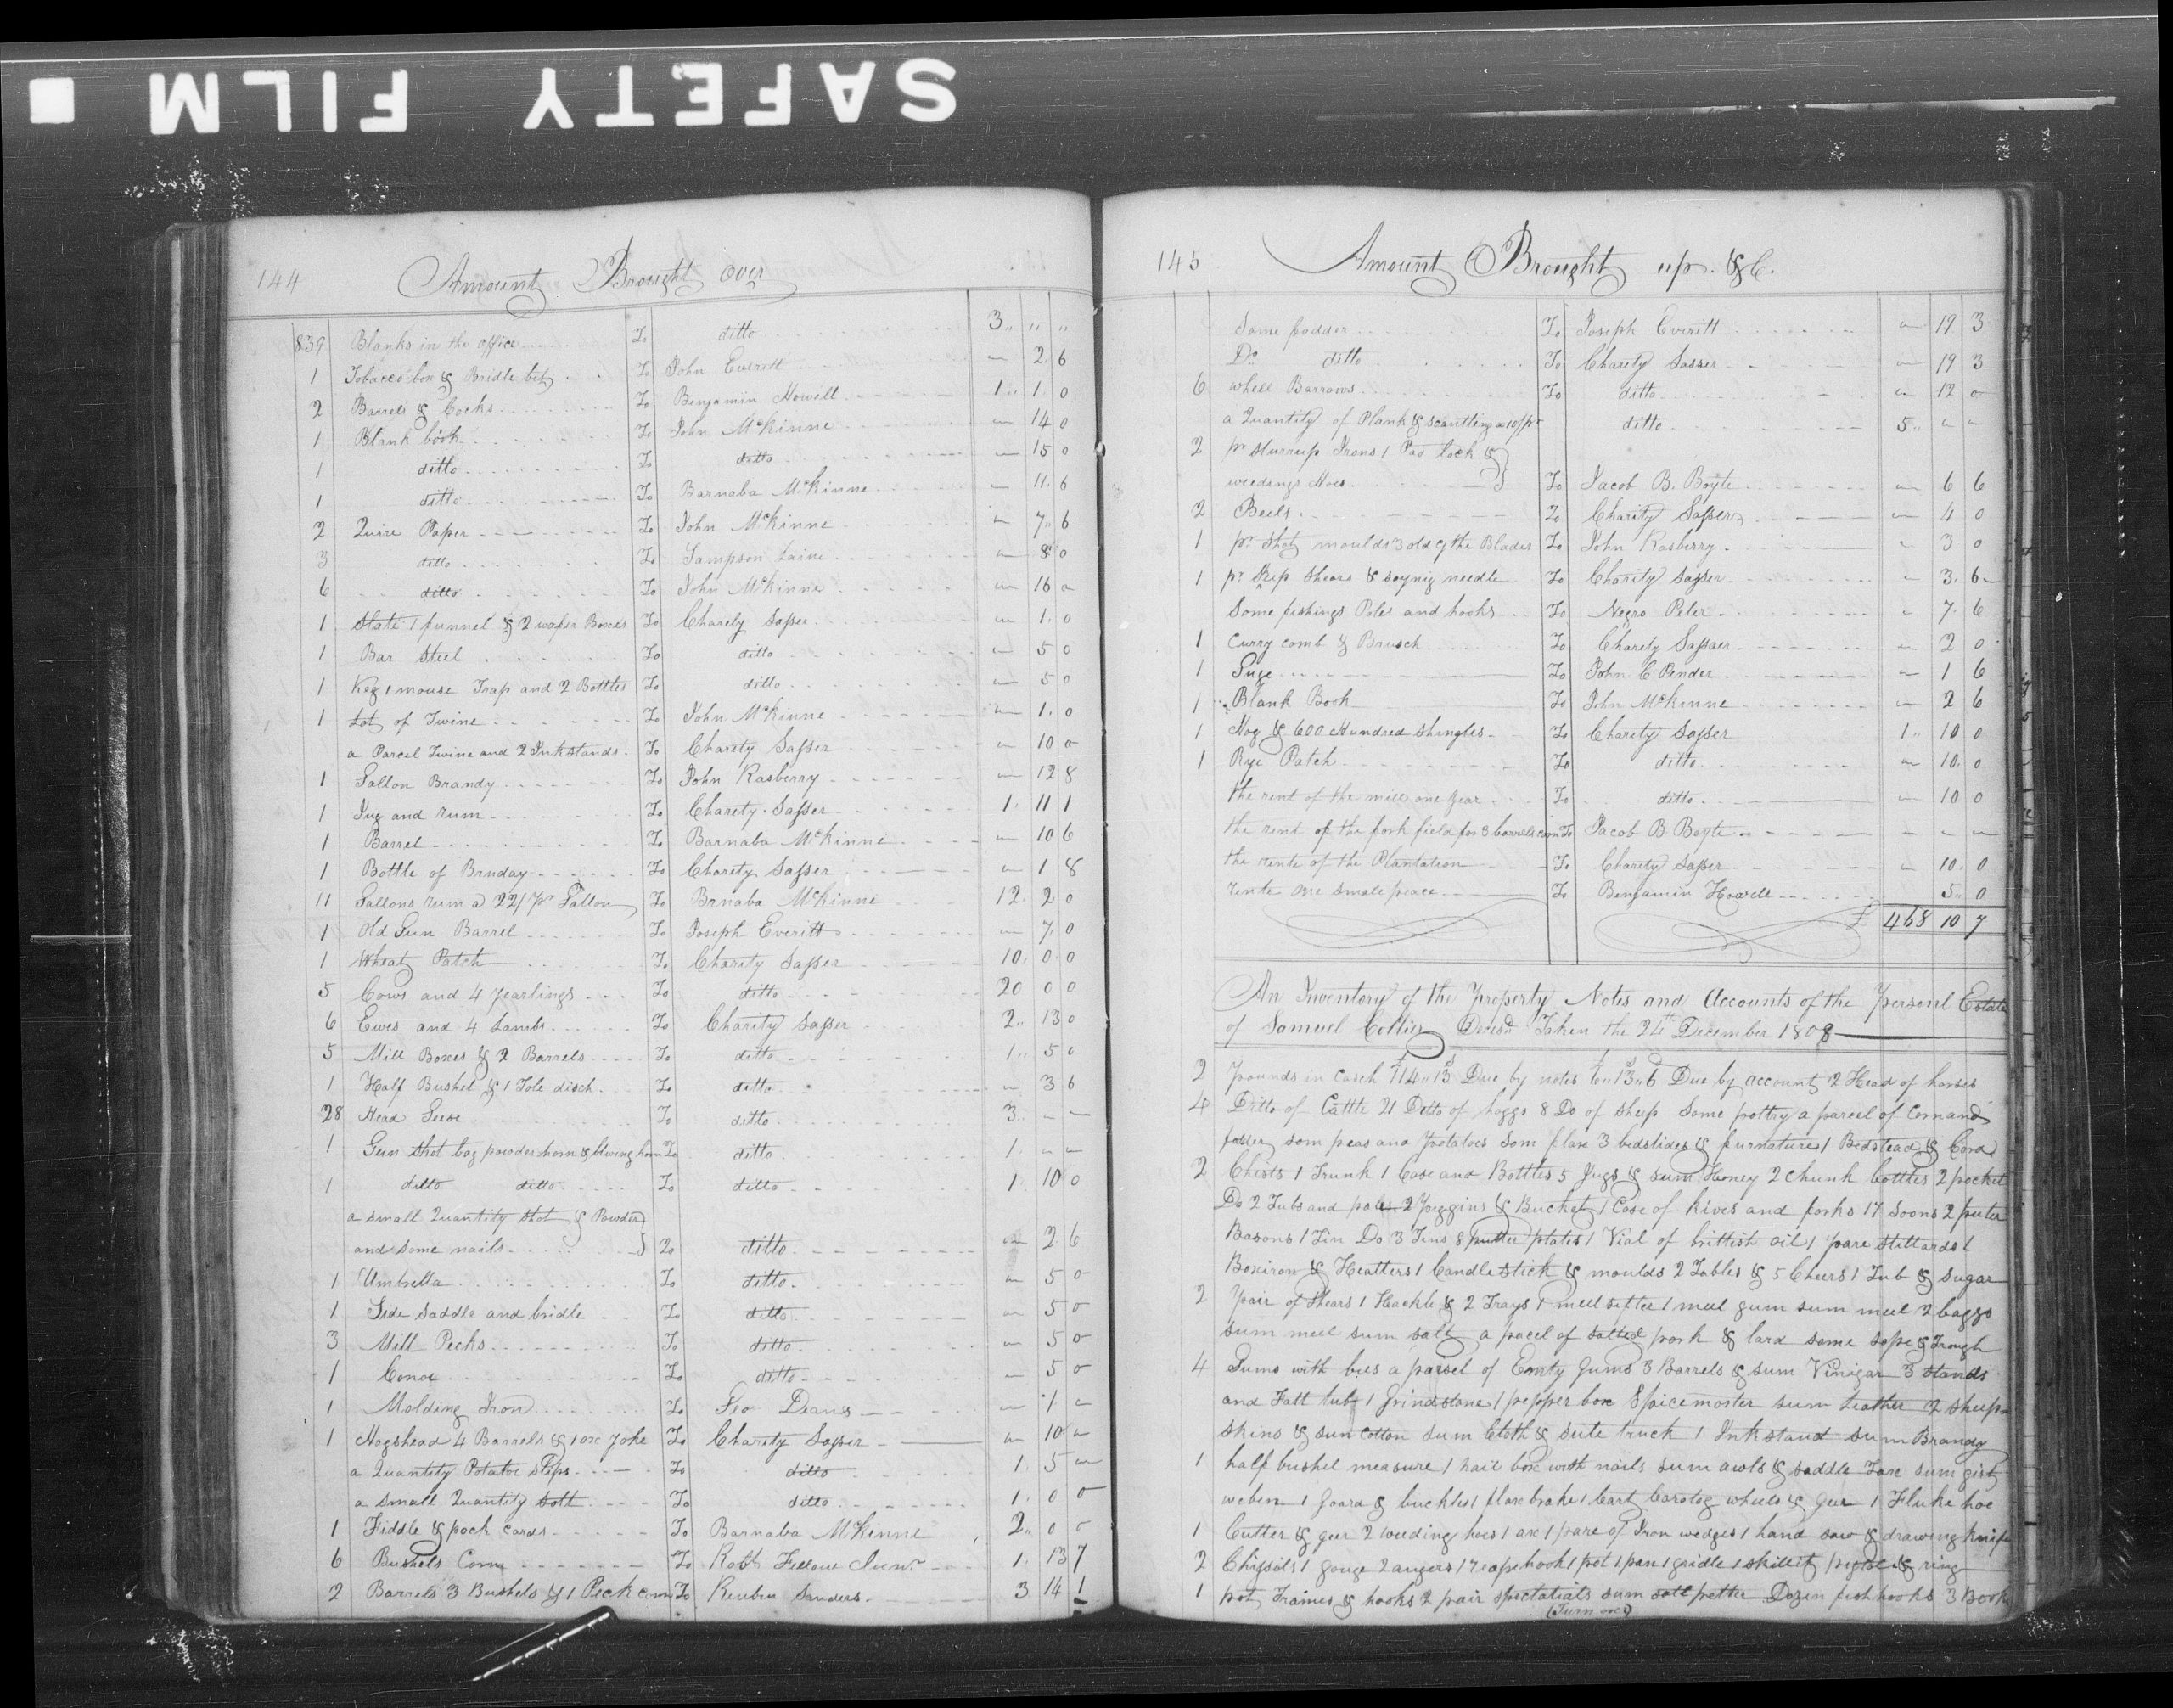 SAFETY FILM
144 Amount Brought over
839 Blanks in the office To ditto 3 " "
1 Tobacco box & Bridle bit To John Everitt — 2 6
2 Barrels & Cocks To Benjamin Howill 1 1 0
1 Blank book To John McKinne — 14 0
1 ditto To ditto — 15 0
1 ditto To Barnaba McKinne — 11 6
2 Quire Paper To John McKinne — 7 6
3 ditto To Sampson Laine — 8 0
6 ditto To John McKinne — 16 —
1 Slate 1 funnel & 2 wafer Boxes To Charety Sasser — 1 0
1 Bar Steel To ditto — 5 0
1 Keg 1 mouse Trap and 2 Bottles To ditto — 5 0
1 Lot of Twine To John McKinne — 1 0
a Parcel Twine and 2 Inkstands To Charety Sasser — 10 0
1 Gallon Brandy To John Rasberry — 12 8
1 Jug and rum To Charety Sasser 1 11 1
1 Barrel To Barnaba McKinne — 10 6
1 Bottle of Brnday To Charety Sasser — 1 8
11 Gallons rum a 22/ pr Gallon To Brnaba McKinne 12 2 0
1 Old Gun Barrel To Joseph Everitt — 7 0
1 Wheat Patch To Charety Sasser 10 0 0
5 Cows and 4 yearlings To ditto 20 0 0
6 Ewes and 4 Lambs To Charity Sasser 2 13 0
5 Mill Boxes & 2 Barrels To ditto 1 5 0
1 Half Bushel & 1 Tole disch To ditto — 3 6
28 Head Geese To ditto 3 — —
1 Gun shot bag powder horn & blwing horn To ditto 1 — —
1 ditto ditto To ditto 1 10 0
a small Quantity shot & Powder
and some nails To ditto — 2 6
1 Umbrella To ditto — 5 0
1 Side Saddle and bridle To ditto — 5 0
3 Mill Pecks To ditto — 5 0
1 Conoe To ditto — 5 0
1 Molding Iron To Geo Deans — 1 —
1 Hogshead 4 Barrels & 1 ox Yoke To Charety Sasser — 10 —
a Quantity Potatoe slips To ditto 1 5 —
a small Quantity salt To ditto 1 0 0
1 Fiddle & pock cards To Barnaba McKinne 2 0 0
6 Bushels Corn To Robt Fellow Junr 1 13 7
2 Barrels 3 Bushels & 1 Peck corn To Reuben Sanders 3 14 1
145 Amount Brought up. &C.
Some fodder To Joseph Everitt — 19 3
Do ditto To Charety Sasser — 19 3
6 whell Barrows To ditto — 12 0
a Quantity of Plank & scantling ditto 5 — —
2 pr Sturrup Irons 1 Pad lock &
weedings Hoes To Jacob B. Boyte — 6 6
2 Beels To Charity Sasser — 4 0
1 pr shot moulds 3 old Sythe Blades To John Rasberry — 3 0
1 pr Shep Shears & needle To Charity Sasser — 3 6
Some fishings Poles and hooks To Negro Peter — 7 6
1 curry comb & Brusch To Charety Sassaer — 2 0
1 Guge To John C Pender — 1 6
1 Blank Book To John McKinne — 2 6
1 Hog & 600 Hundred shingles To Charety Sasser 1 10 0
1 Rye Patch To ditto — 10 0
the rent of the mill one year To ditto — 10 0
the rent of the fork field for 3 barrels corn To Jacob B Boyte — — —
the rente of the Plantation To Charety Sasser — 10 0
rente one smale peace To Benjamin Howell 5 0
£ 468 10 7
An Inventory of the Property Notes and Accounts of the Personl Estate
of Samuel Collier Decsd Taken the 24th December 1808
2 Pounds in casch £114 " 13s Due by notes 6 " 13 " 6 Due by account 2 Head of horses
4 Ditto of Cattle 21 Detto of hoggs 8 Do of sheep Some pottry a parcel of Corn and
fodder som peas and Potatoes Som flax 3 bedstides & furnature 1 Bedstead & Cord
2 Chests 1 Trunk 1 Case and Bottles 5 Jugs & sum Honey 2 Chunk bottles 2 pocket
Do 2 Tubs and pale 2 Piggins & Bucket 1 Case of Kives and forks 17 Soons 2 puter
Basons 1 Tin Do 3 Tins 8 putter plates 1 Vial of brittish oil 1 pare stillards 1
Boxiron & Heatters 1 Candlestick & moulds 2 Tables & 5 Cheers 1 Tub & sugar
2 Pair of Shears 1 Hackle & 2 Trays 1 meel sifter 1 meel gum sum meel 2 baggs
sum meel sum salt a pacel of salted pork & lard some sope & Trough
4 Gums with bees a parsel of Emty Gums 3 Barrels & sum Vinigar 3 stands
and Fatt tub 1 Grindstone 1 pepper box Spicemorter sum Leather 2 sheep
skins & sun cotton sum Cloth & truck 1 Inkstand sum Brandy
1 half bushel measure 1 nail box with nails sum awls & saddle sum
weben 1 & buckles 1 flax brake 1 Cart wheels & geer 1 Fluke hoe
1 Cutter & geer 2 weeding hoes 1 ax 1 pare of Iron wedges 1 hand saw & drawing knife
2 Chissils 1 gouge 2 augers 1 reape hook 1 pot 1 pan 1 gridle 1 skillit & ring
1 pot Traimes & hooks 2 pair spectatials sum salt petter Dozen fish hooks 3 Books
(Turn over)